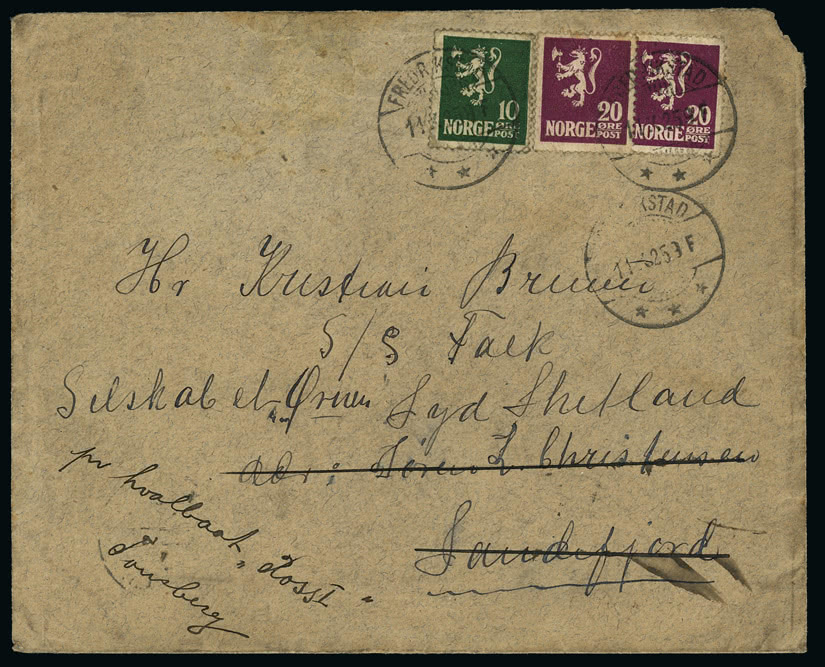 FREDRIK
10
ØRE
NORGE POST
20
ØRE
NORGE POST
20
ØRE
NORGE POST
STAD
KSTAD
Hr Kristian Bruun
S/S Falk
Selskabet „Ørnen" Syd Shetland
adr: Søren L. Christensen
Sandefjord
pr hvalbaat „Ross I"
Tønsberg